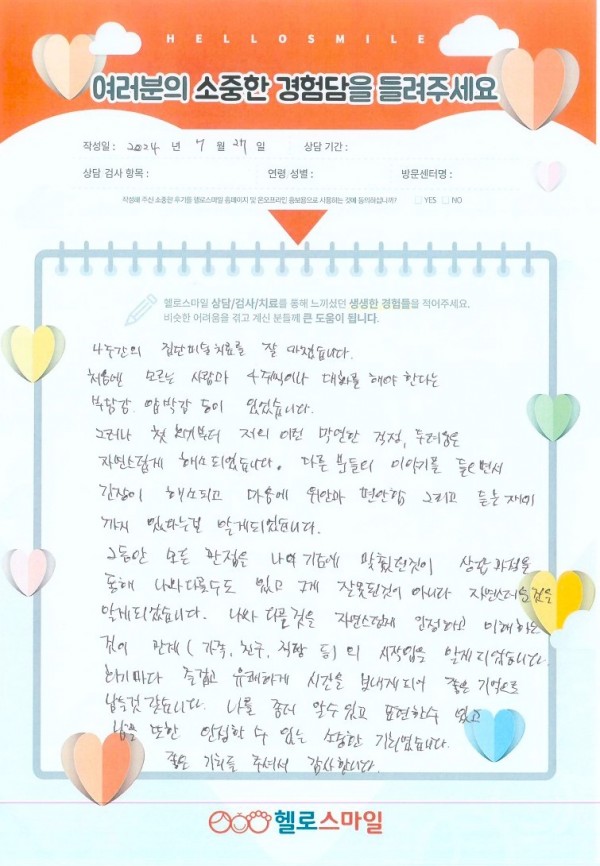 HELLOSMILE
여러분의 소중한 경험담을 들려주세요
작성일 : 2024 년 7 월 27 일 상담 기간 :
상담 검사 항목 : 연령 성별 : 방문센터명 :
작성해 주신 소중한 후기를 헬로스마일 홈페이지 및 온오프라인 홍보물으로 사용하는 것에 동의하십니까? YES NO
헬로스마일 상담/검사/치료를 통해 느끼셨던 생생한 경험들을 적어주세요.
비슷한 어려움을 겪고 계신 분들께 큰 도움이 됩니다.
4주간의 집단미술치료를 잘 마쳤습니다.
처음에 모르는 사람과 4주씩이나 대화를 해야 한다는
부담감 압박감 등이 있었습니다.
그러나 첫 회기부터 저의 이런 막연한 걱정, 두려움은
자연스럽게 해소되었습니다. 다른 분들의 이야기를 들으면서
긴장이 해소되고 마음에 위안과 편안함 그리고 듣는 재미
까지 있다는걸 알게되었습니다.
그동안 모든 관점은 나의 기준에 맞췄던것이 상담과정을
통해 나와 다를수도 있고 그게 잘못된것이 아니라 자연스러운것을
알게되었습니다. 나와 다른것을 자연스럽게 인정하고 이해하는
것이 관계 ( 가족, 친구, 직장 등 ) 의 시작임을 알게되었습니다.
회기마다 즐겁고 유쾌하게 시간을 보내게되어 좋은 기억으로
남을것 같습니다. 나를 좀더 알수있고 표현할수 있고
남을 또한 인정할 수 있는 소중한 기회였습니다.
좋은 기회를 주셔서 감사합니다.
헬로스마일